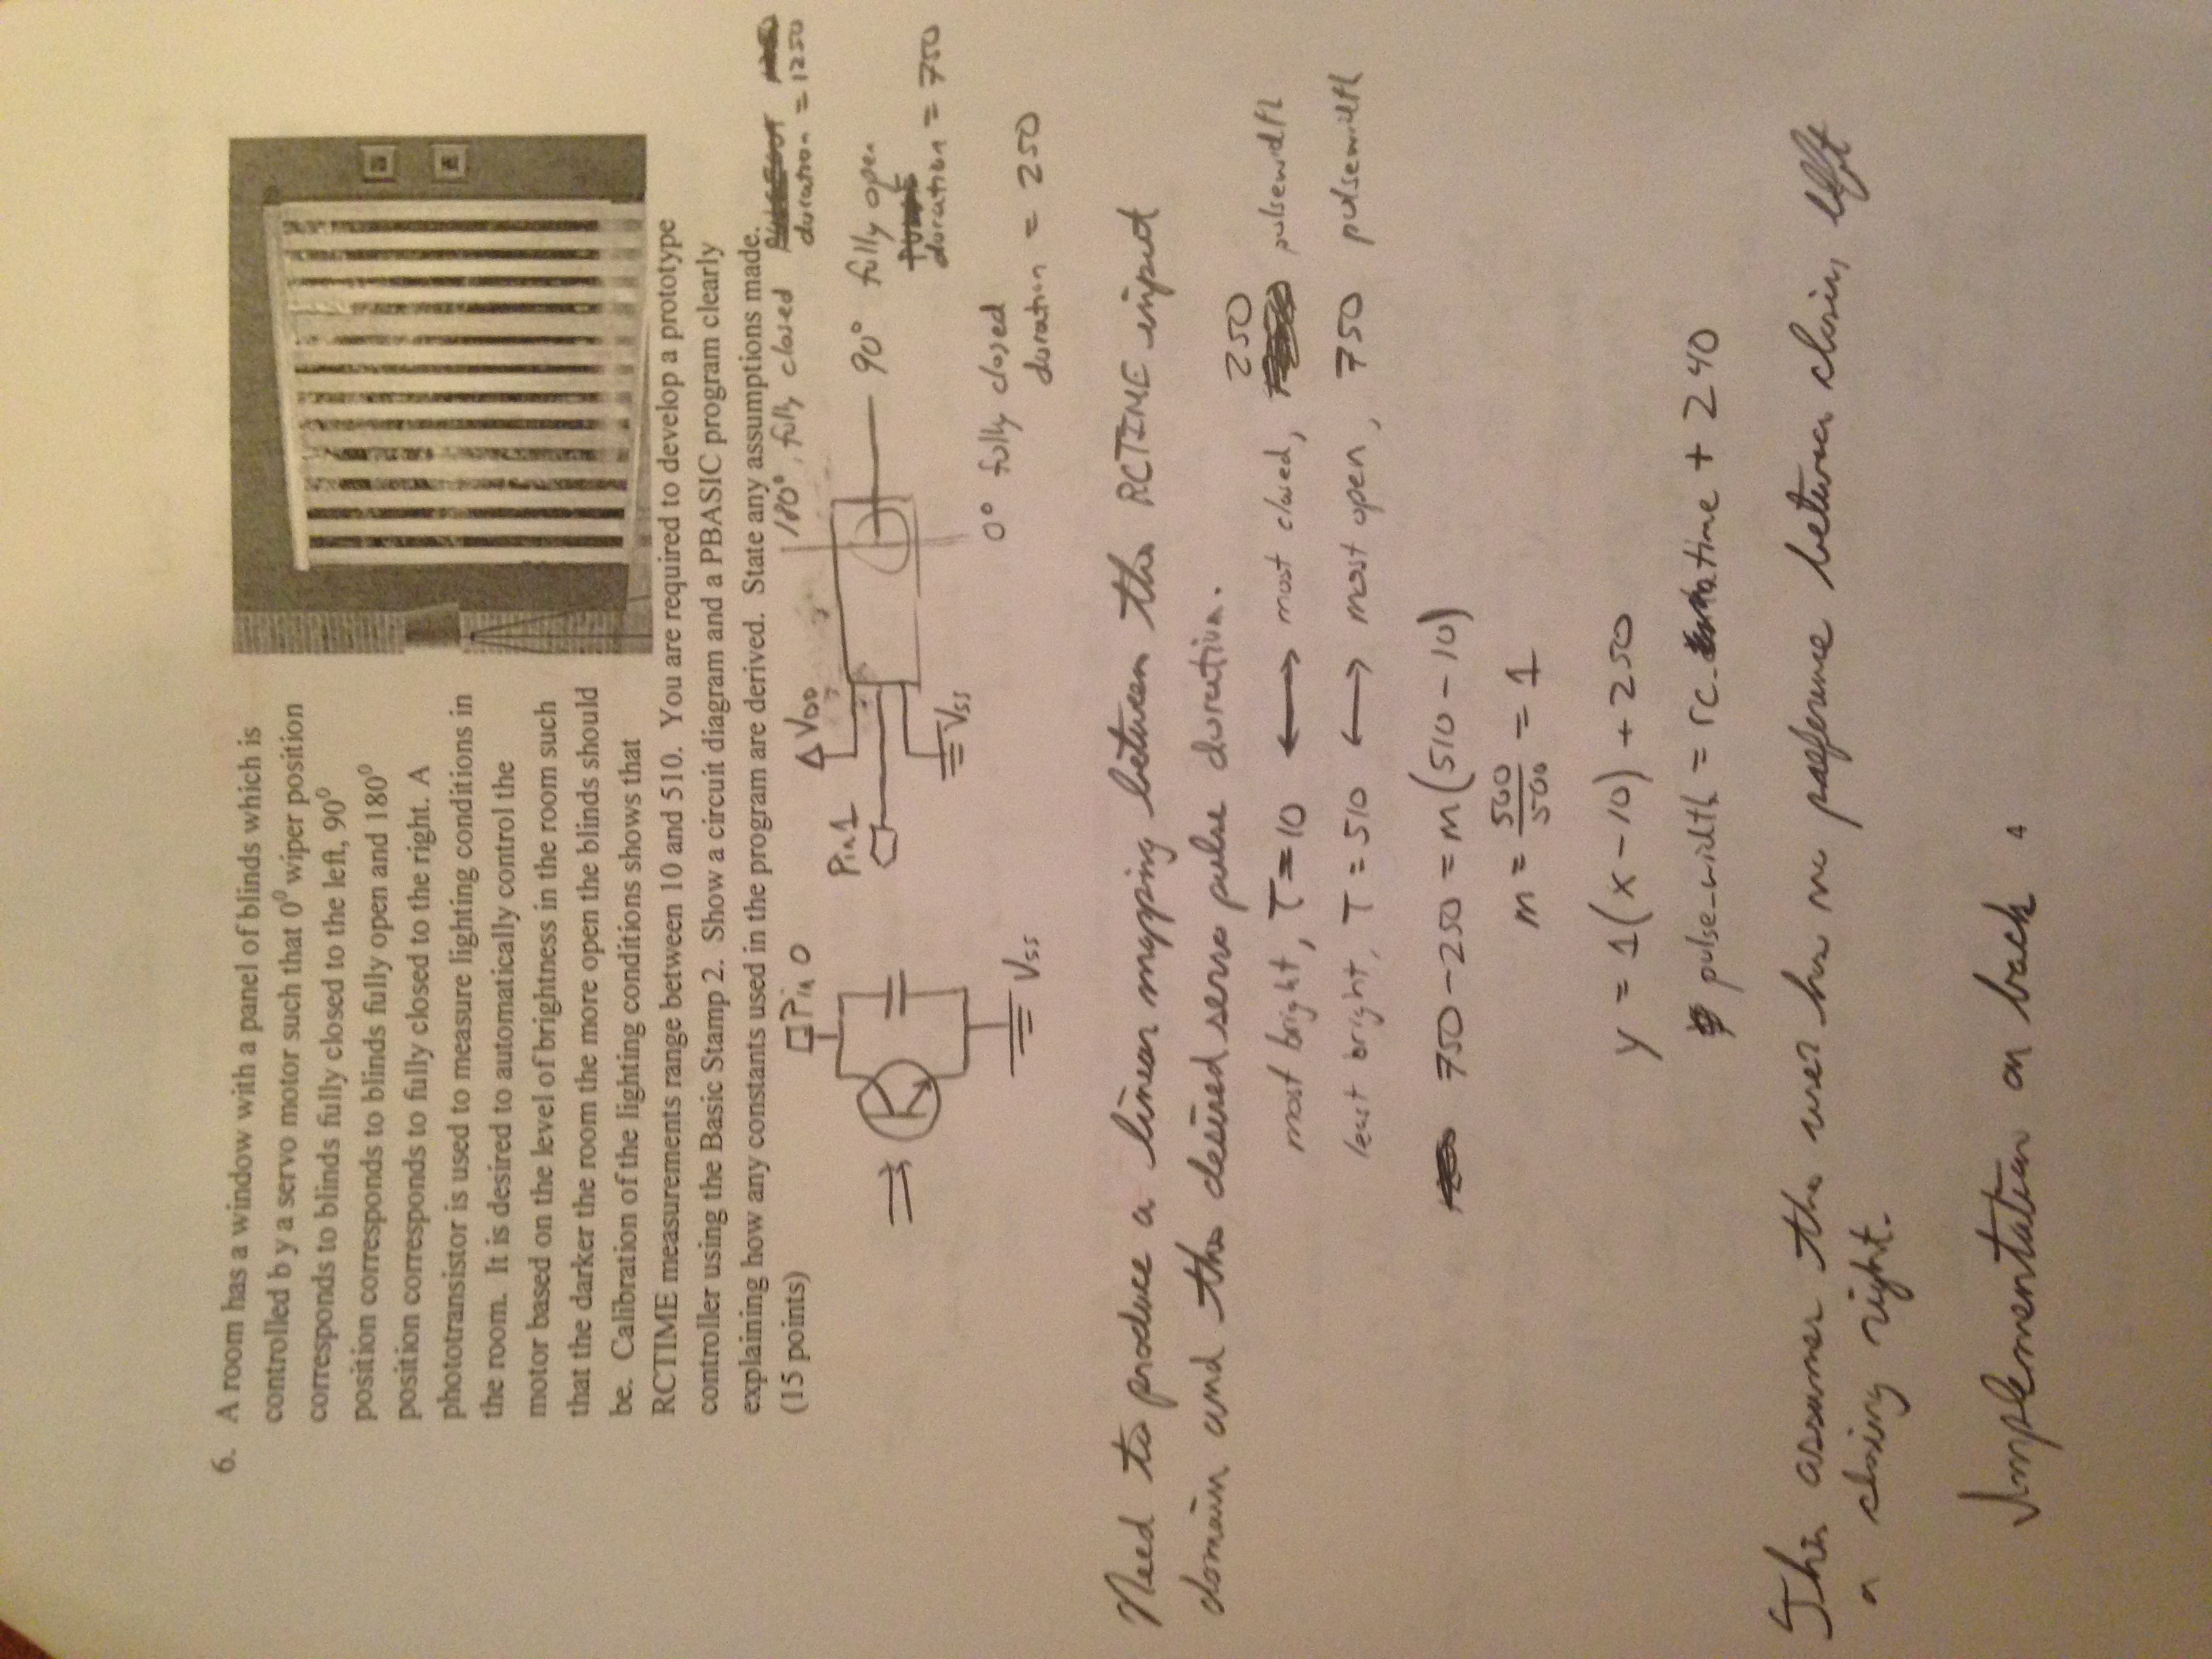 6. A room has a window with a panel of blinds which is
controlled b y a servo motor such that 0⁰ wiper position
corresponds to blinds fully closed to the left, 90⁰
position corresponds to blinds fully open and 180⁰
position corresponds to fully closed to the right. A
phototransistor is used to measure lighting conditions in
the room. It is desired to automatically control the
motor based on the level of brightness in the room such
that the darker the room the more open the blinds should
be. Calibration of the lighting conditions shows that
RCTIME measurements range between 10 and 510. You are required to develop a prototype
controller using the Basic Stamp 2. Show a circuit diagram and a PBASIC program clearly
explaining how any constants used in the program are derived. State any assumptions made.
(15 points)
Pin 0
Pin 1
VDD
Vss
Vss
180°, fully closed
duration = 1250
90° fully open
duration = 750
0° fully closed
duration = 250
Need to produce a linear mapping between the RCTIME input
domain and the desired servo pulse duration.
250
most bright, T = 10 ⟷ most closed, pulsewidth
least bright, T = 510 ⟷ most open, 750 pulsewidth
750 - 250 = m(510 - 10)
m = 500/500 = 1
y = 1(x - 10) + 250
pulse_width = rc_time + 240
This assumes the user has no preference between closing left
or closing right.
Implementation on back
4